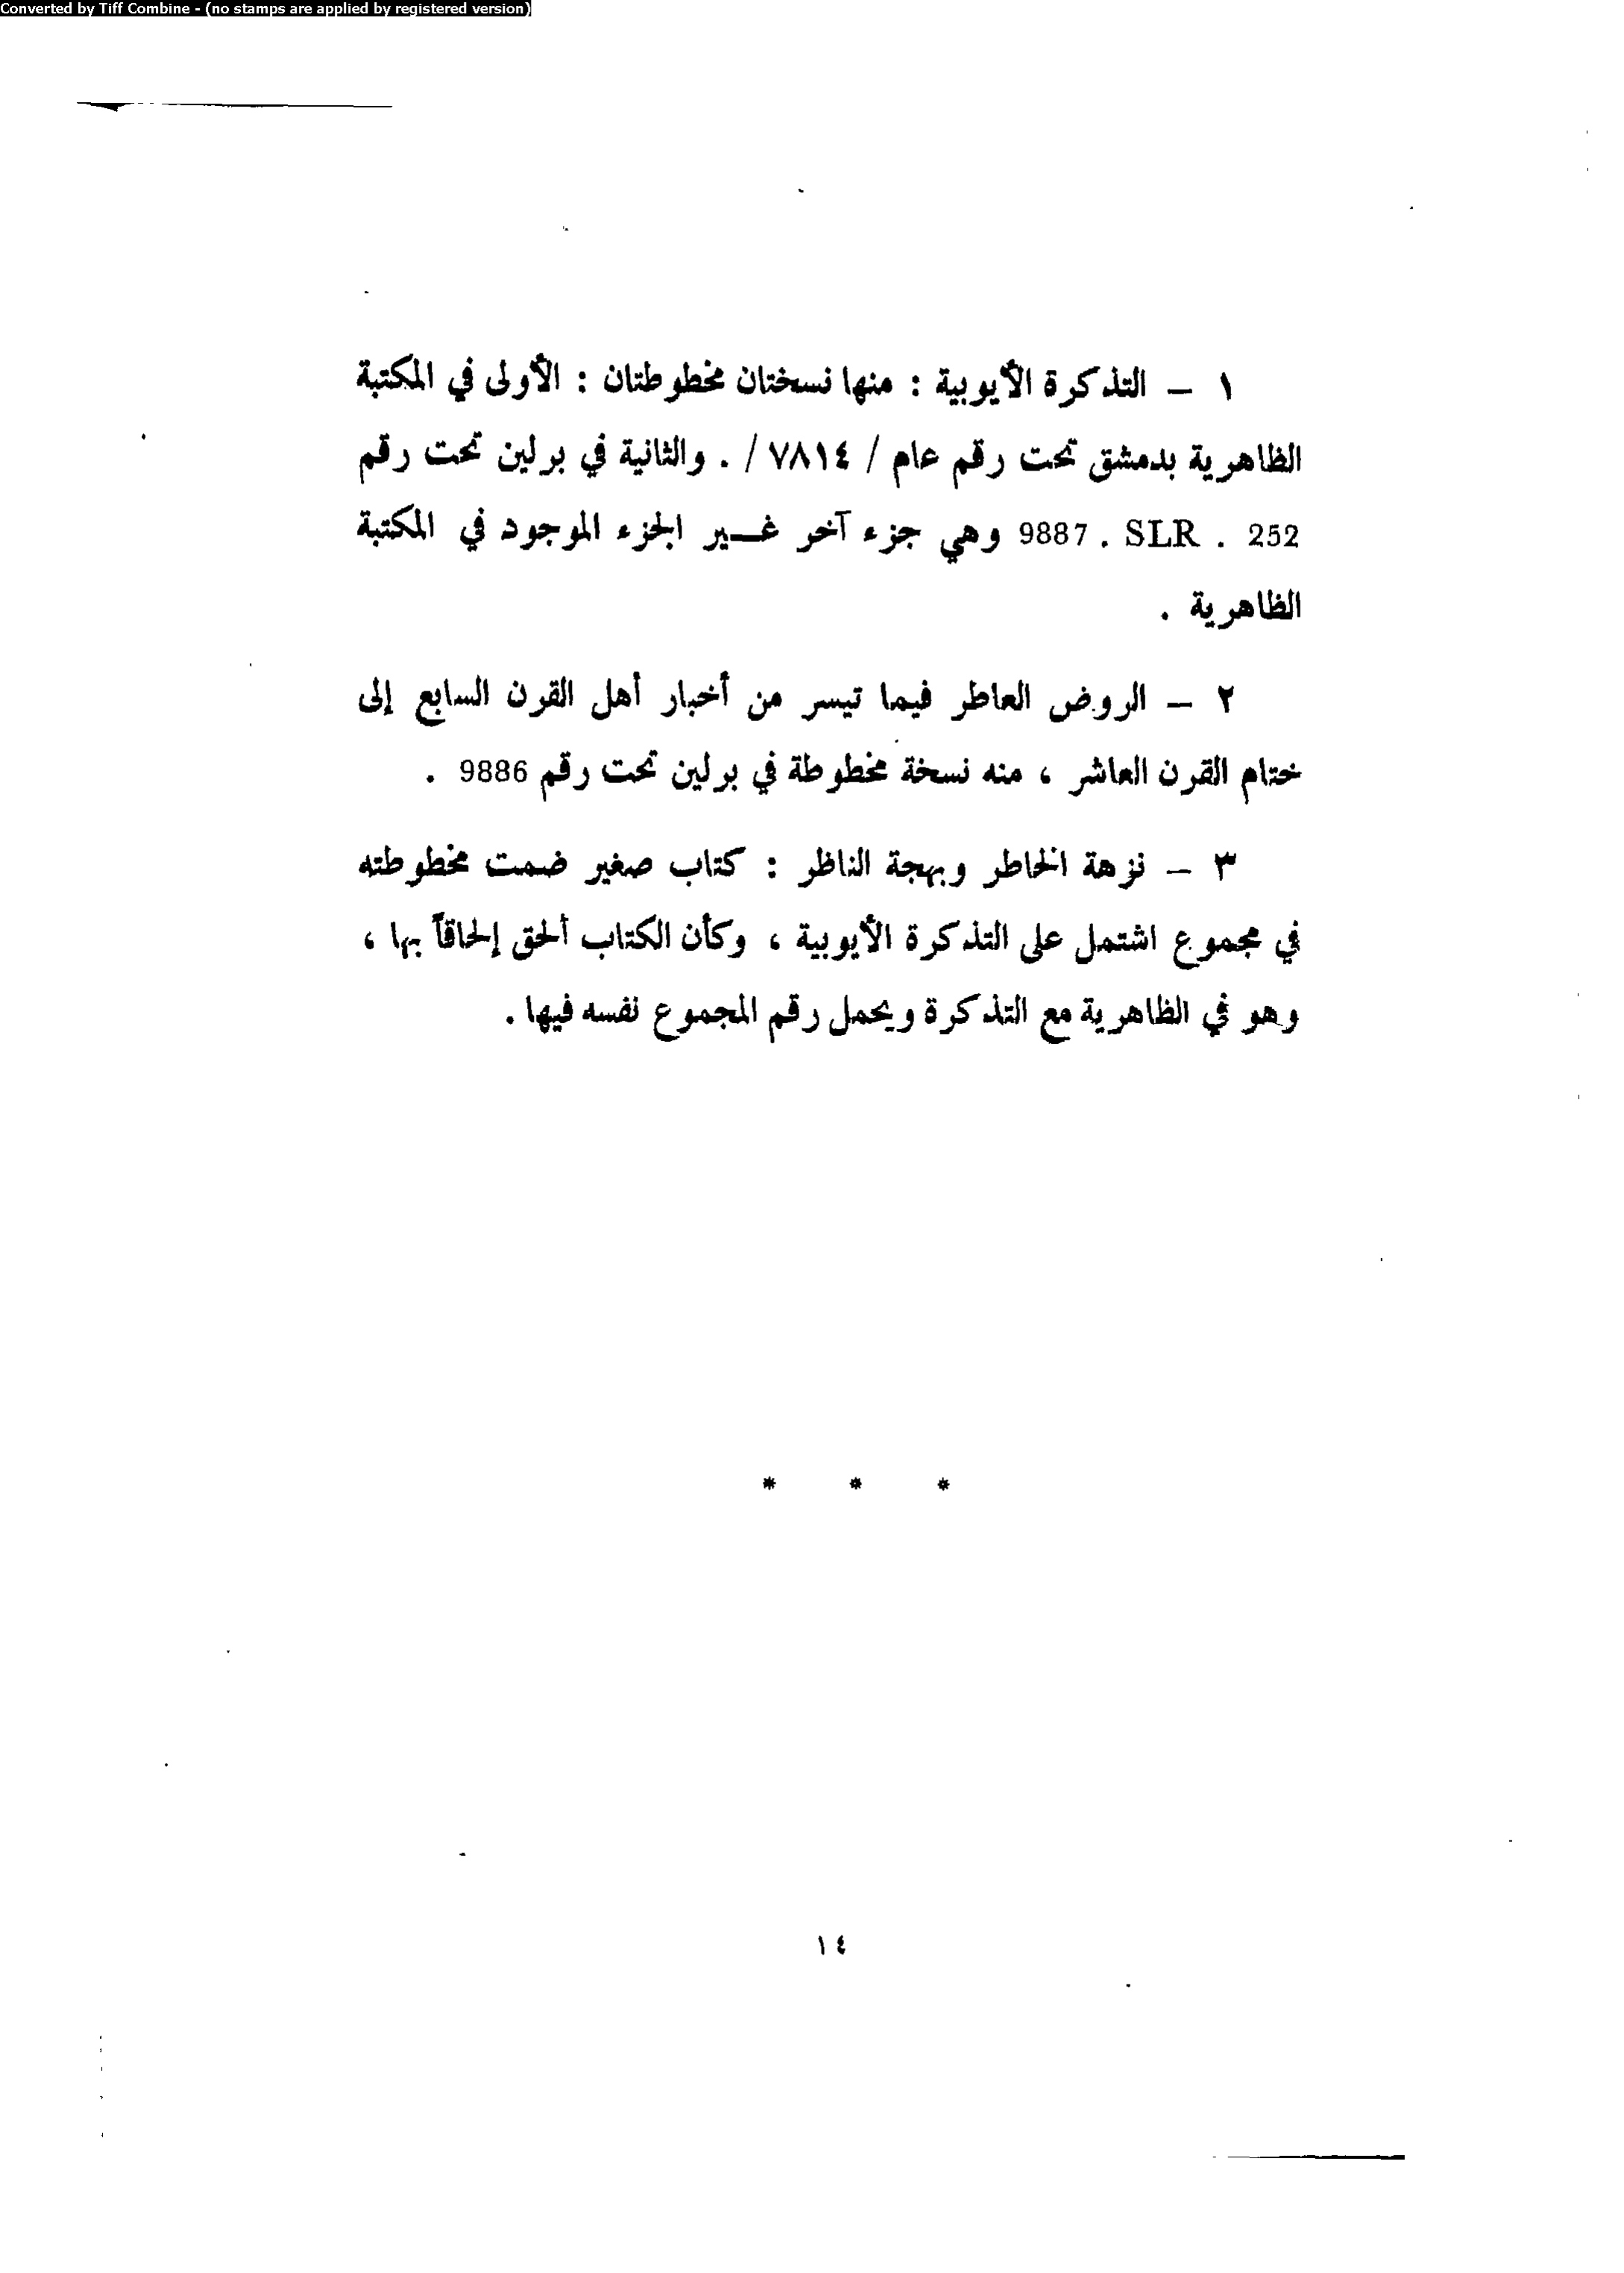 Converted by Tiff Combine - (no stamps are applied by registered version)
١ – التذكرة الأيوبية : منها نسختان مخطوطتان : الأولى في المكتبة
الظاهرية بدمشق تحت رقم عام / ٧٨١٤ / . والثانية في برلين تحت رقم
9887 . SLR . 252 وهي جزء آخر غـــير الجزء الموجود في المكتبة
الظاهرية .
٢ – الروض العاطر فيما تيسر من أخبار أهل القرن السابع إلى
ختام القرن العاشر ، منه نسخة مخطوطة في برلين تحت رقم 9886 .
٣ – نزهة الخاطر وبهجة الناظر : كتاب صغير ضمت مخطوطته
في مجموع اشتمل على التذكرة الأيوبية ، وكأن الكتاب ألحق إلحاقاً بها ،
وهو في الظاهرية مع التذكرة ويحمل رقم المجموع نفسه فيها .
* * *
١٤